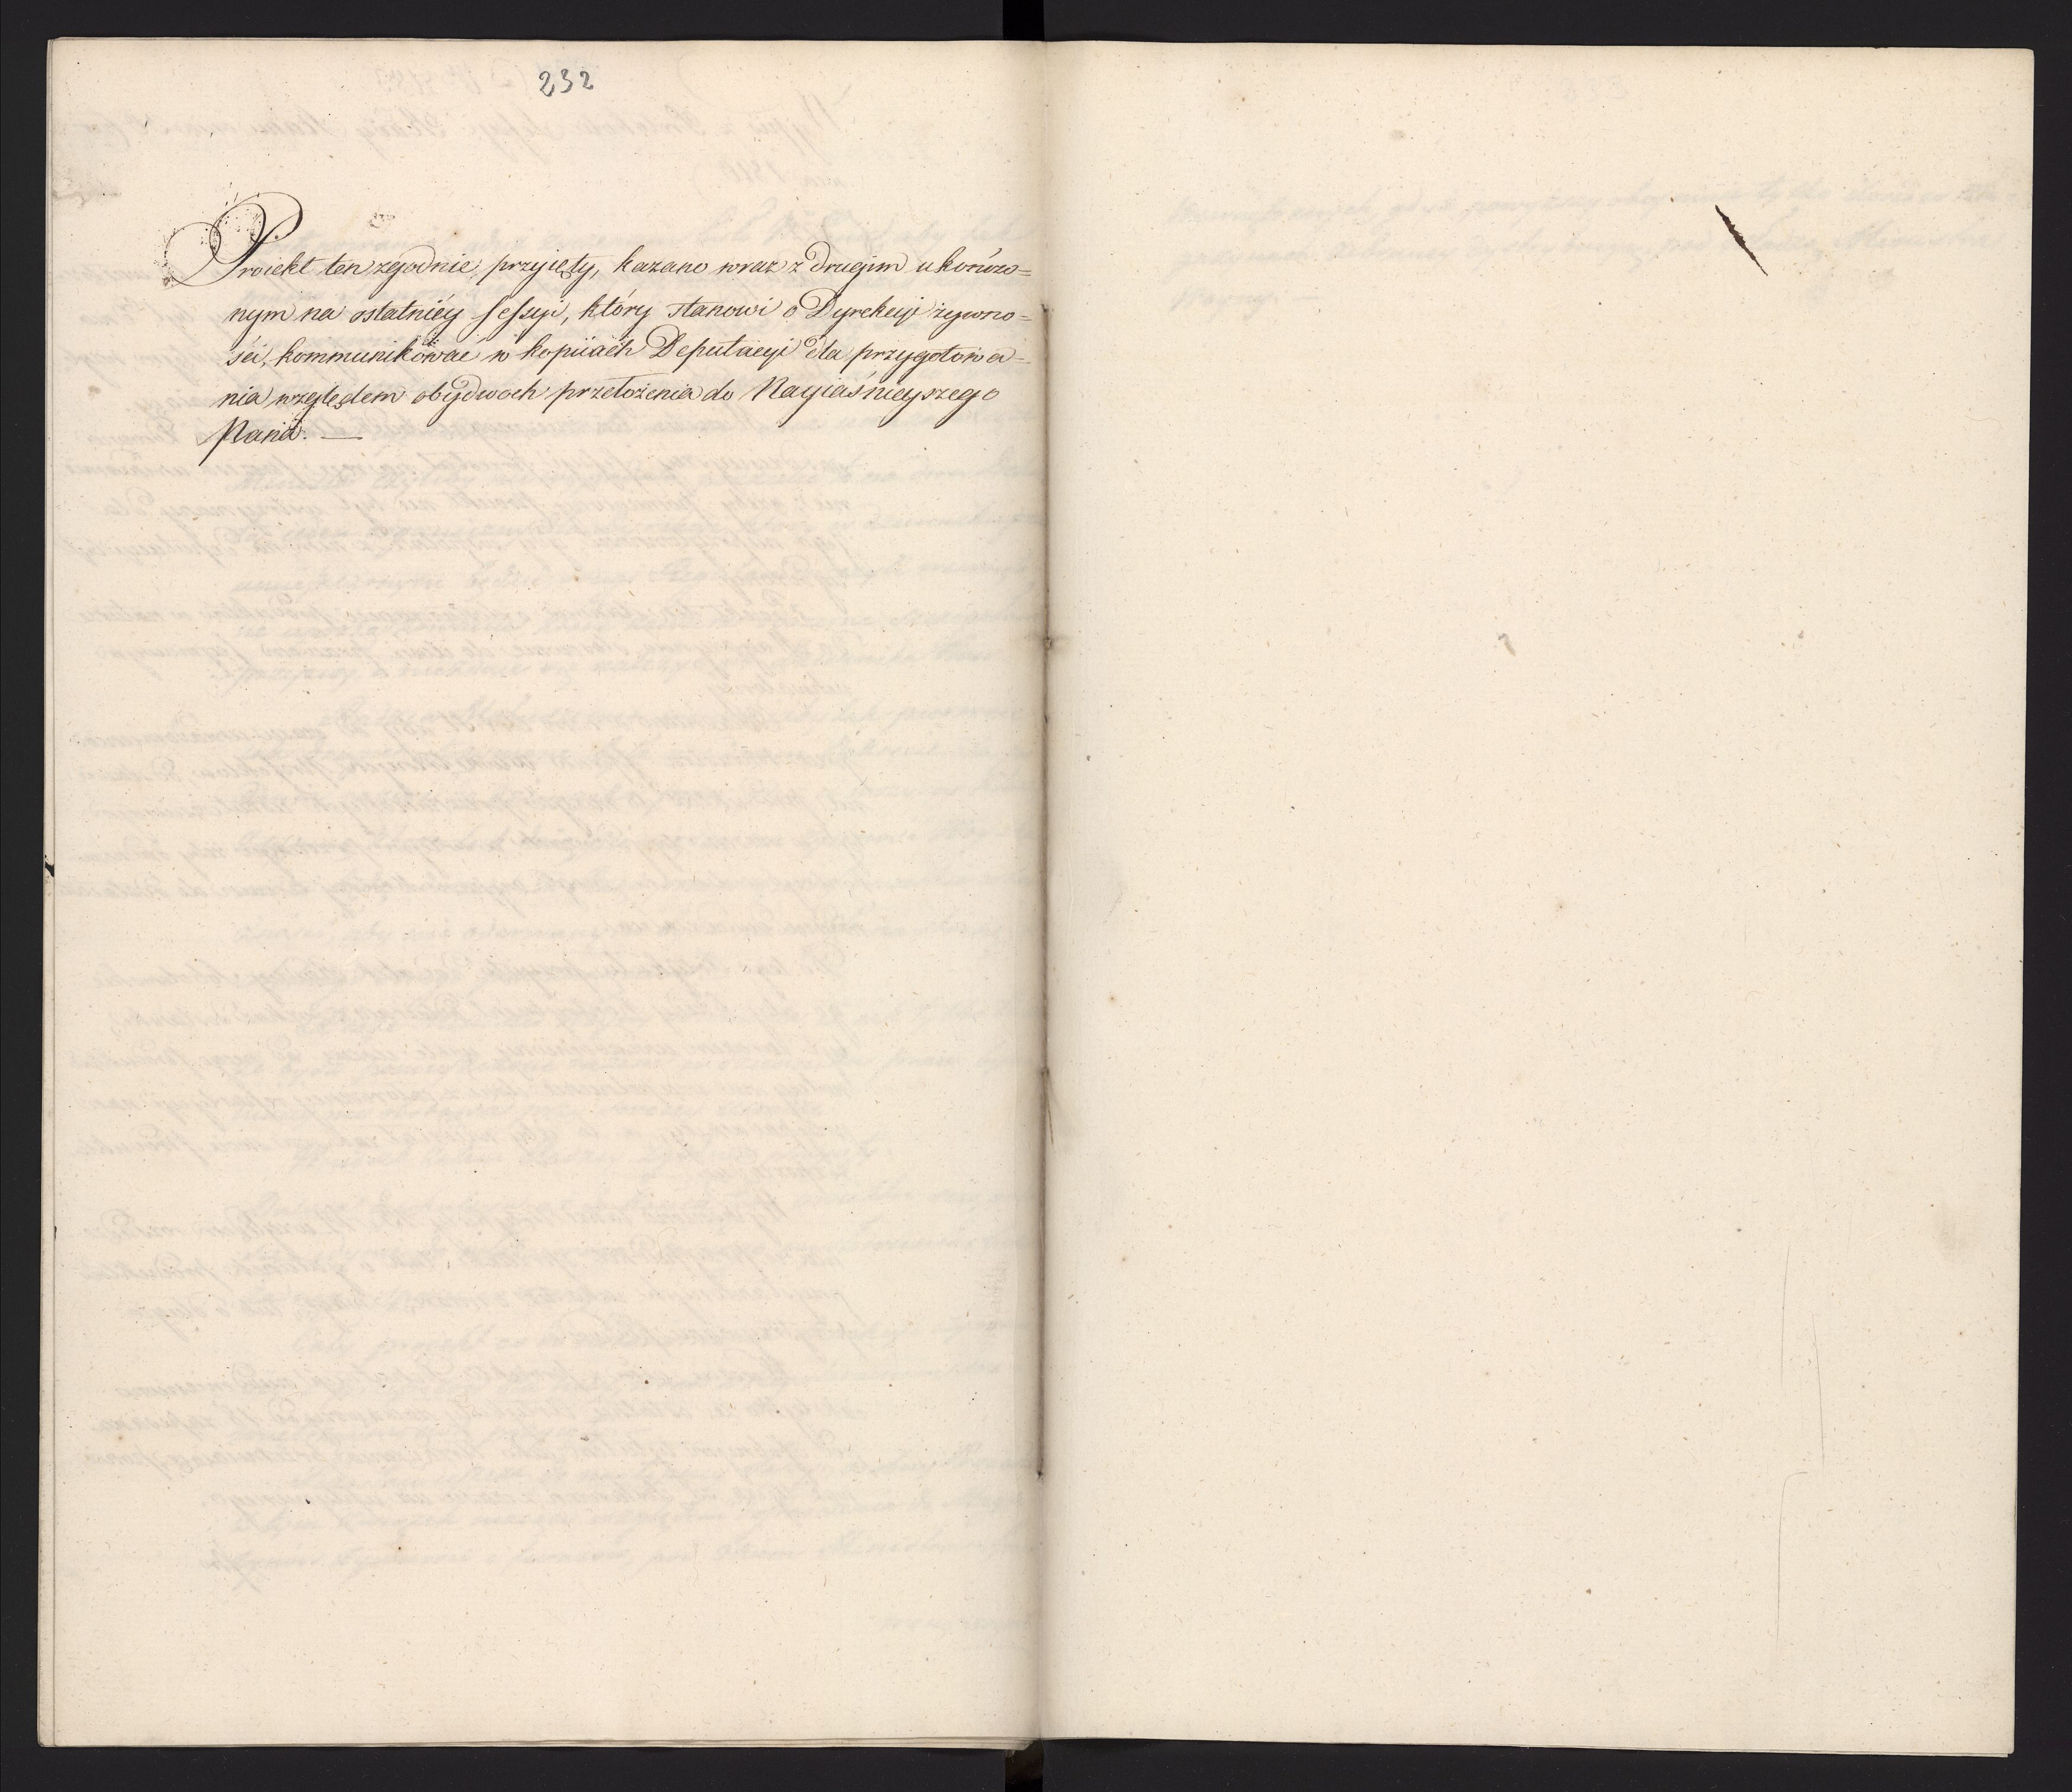 232
Proiekt ten zgodnie przyięty, kazano wraz z drugim ukończo=
nym na ostatniéy Sessyi, który stanowi o Dyrekcyi żywno=
ści, kommunikować w kopiiach Deputacyi dla przygotowa=
nia względem obydwoch przełożenia do Nayiaśnieyszego
Pana. —